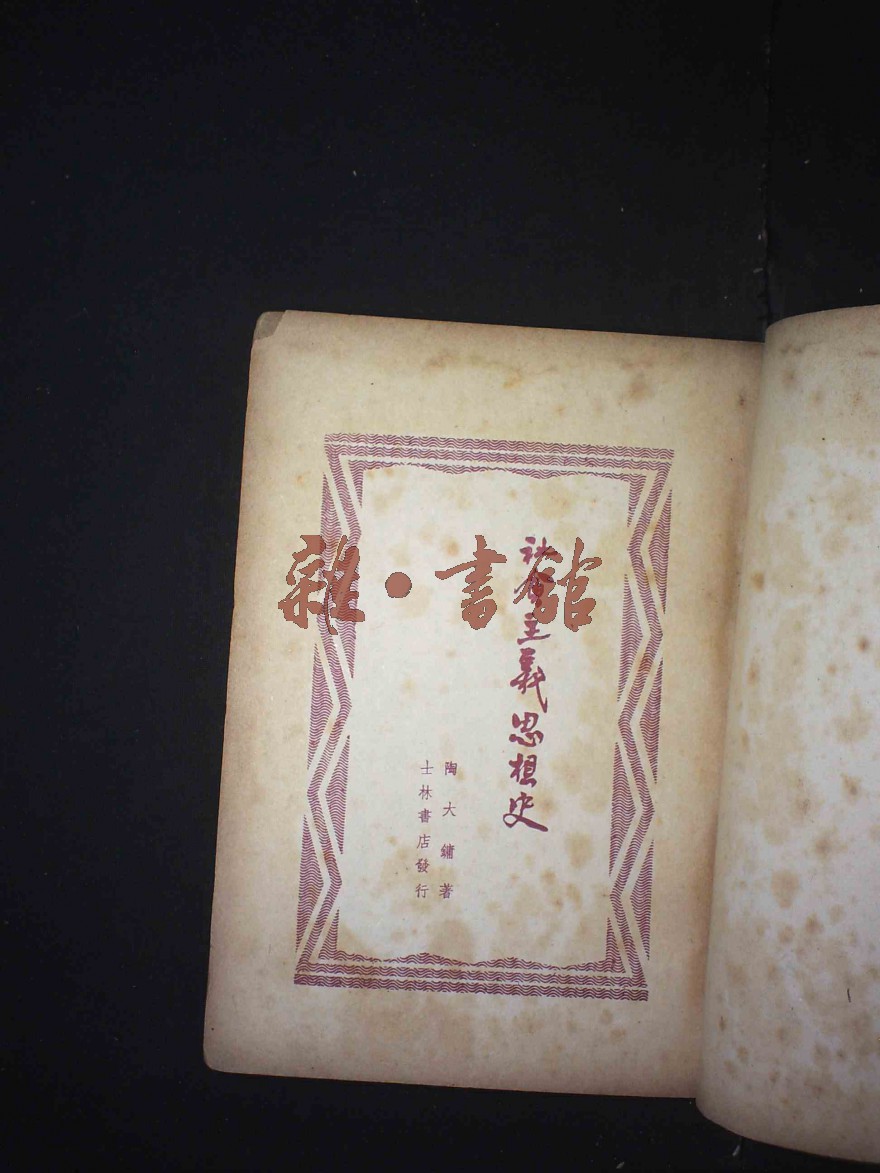 社會主義思想史
陶大鏞著
士林書店發行
雜·書館